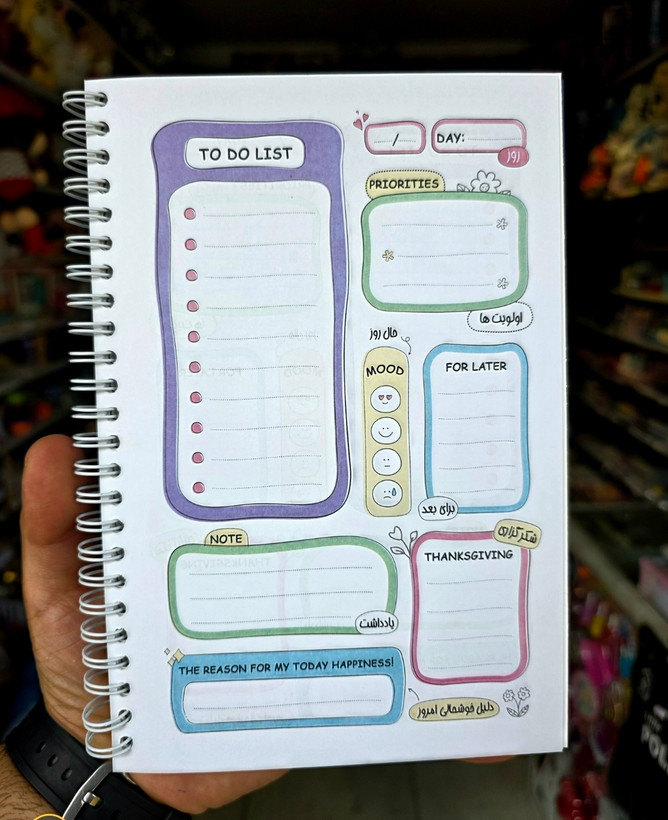 TO DO LIST
/
DAY:
روز
PRIORITIES
اولویت ها
حال روز
MOOD
FOR LATER
برای بعد
NOTE
یادداشت
شکرگزاری
THANKSGIVING
THE REASON FOR MY TODAY HAPPINESS!
دلیل خوشحالی امروز